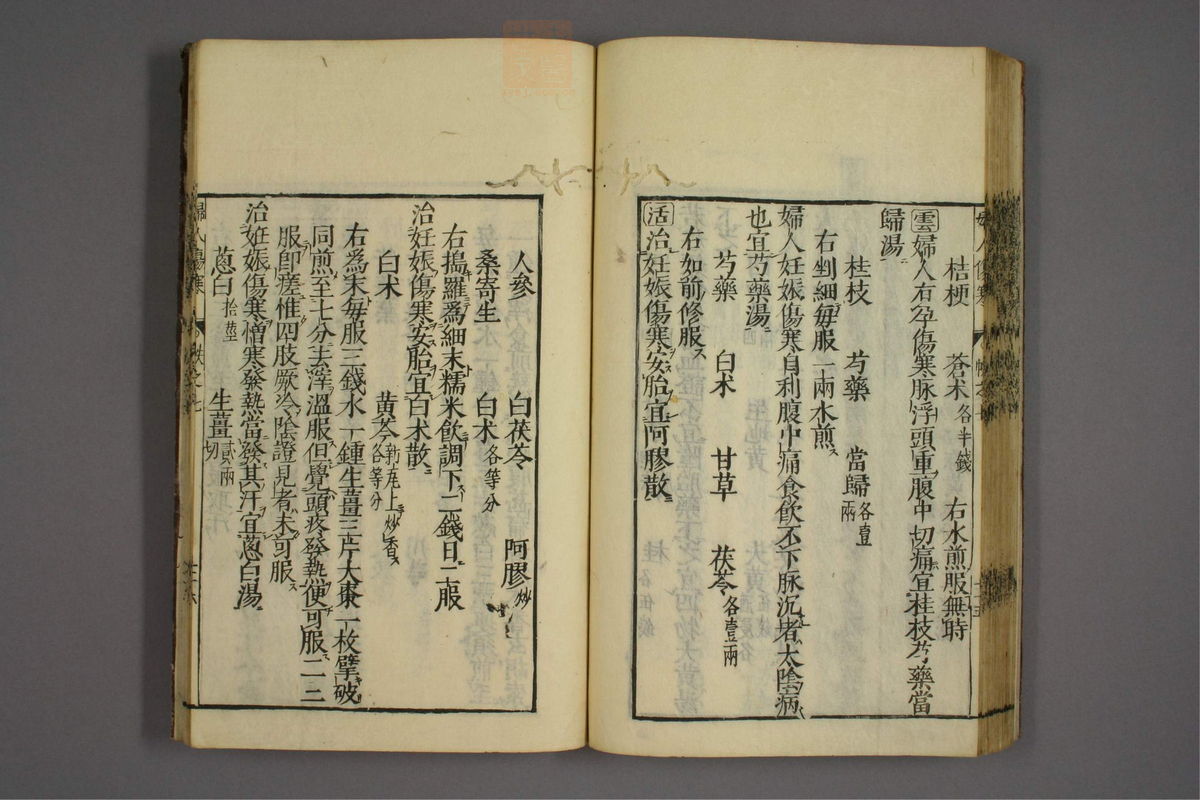 桔梗 蒼朮各半錢 右水煎服無時
雲婦人有孕傷寒脉浮頭重腹中切痛宜桂枝芍藥當
歸湯
桂枝 芍藥 當歸各壹兩
右剉細毎服一兩水煎
婦人妊娠傷寒自利腹中痛食飲不下脉沉者太陰病
也宜芍藥湯
芍藥 白朮 甘草 茯苓各壹兩
右如前修服
活治妊娠傷寒安胎宜阿膠散
人參 白茯苓 阿膠炒
桑寄生 白朮各等分
右搗羅爲細末糯米飲調下二錢日二服
治妊娠傷寒安胎宜白朮散
白朮 黄芩新尾上炒香各等分
右爲末毎服三錢水一鍾生薑三片大棗一枚擘破
同煎至七分去滓溫服但覺頭疼發熱便可服二三
服即瘥惟四肢厥冷陰證見者未可服
治妊娠傷寒憎寒發熱當發其汗宜蔥白湯
蔥白拾莖 生薑貳兩切
婦人傷寒
帙之七